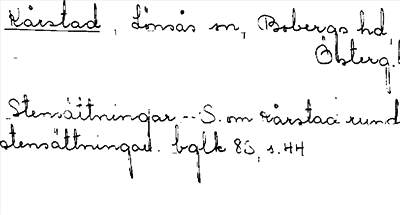 Kårstad, Lönsås sn, Bobergs hd
Österg.
Stensättningar -- S. om Kårstad rund
stensättningar. bglk 83, s. 44